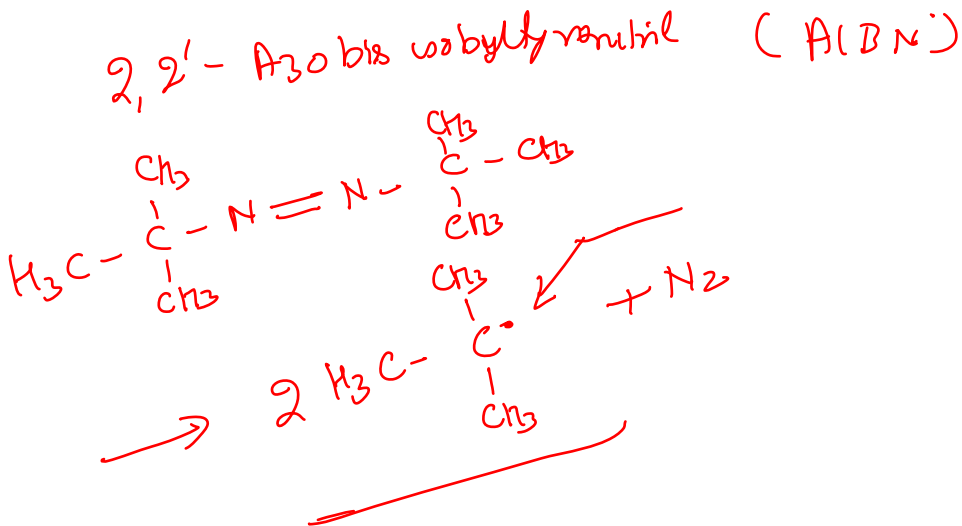 2, 2' - Azobis isobyltyronitril (AIBN)
CH3 CH3
H3C - C - N = N - C - CH3
CH3 CH3
CH3
→ 2 H3C - C• + N2
CH3